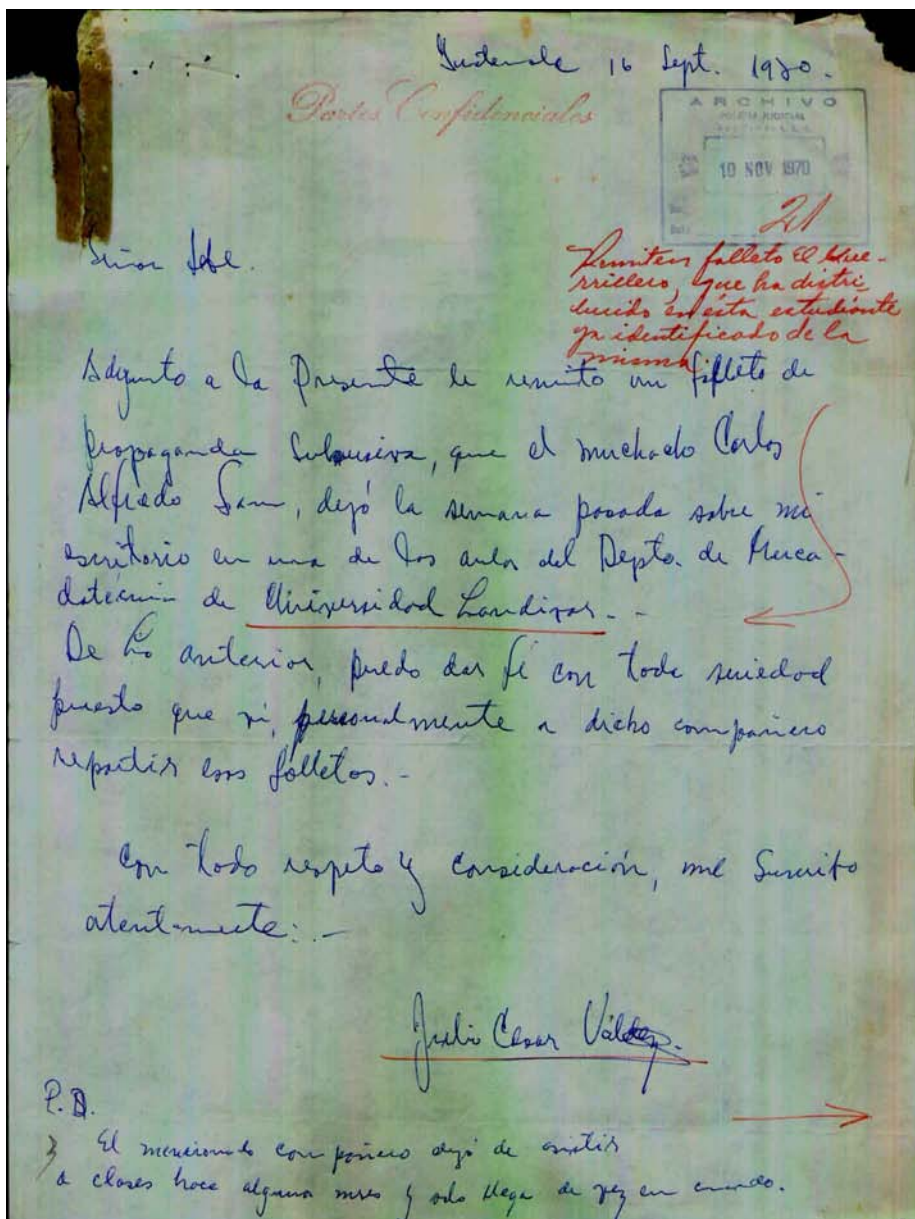 Guatemala 16 Sept. 1970.
Partes Confidenciales
ARCHIVO
POLICIA JUDICIAL
10 NOV 1970
21
Señor Jefe.
Remiten folleto El Gue-
rrillero, que ha distri-
buido en ésta estudiante
ya identificado de la
misma.
Adjunto a la Presente le remito un folleto de
propaganda Subversiva, que el muchacho Carlos
Alfredo, dejó la semana pasada sobre mi
escritorio en una de las aulas del Depto. de Merca-
dotecnia de Universidad Landivar. -
De lo anterior, puedo dar fé con toda seriedad
puesto que vi, personalmente a dicho compañero
repartir esos folletos. -
Con todo respeto y consideración, me Suscribo
atentamente: . -
Julio Cesar Váldez.
P.D.
El mencionado compañero dejó de asistir
a clases hace algunos meses y solo llega de vez en cuando.